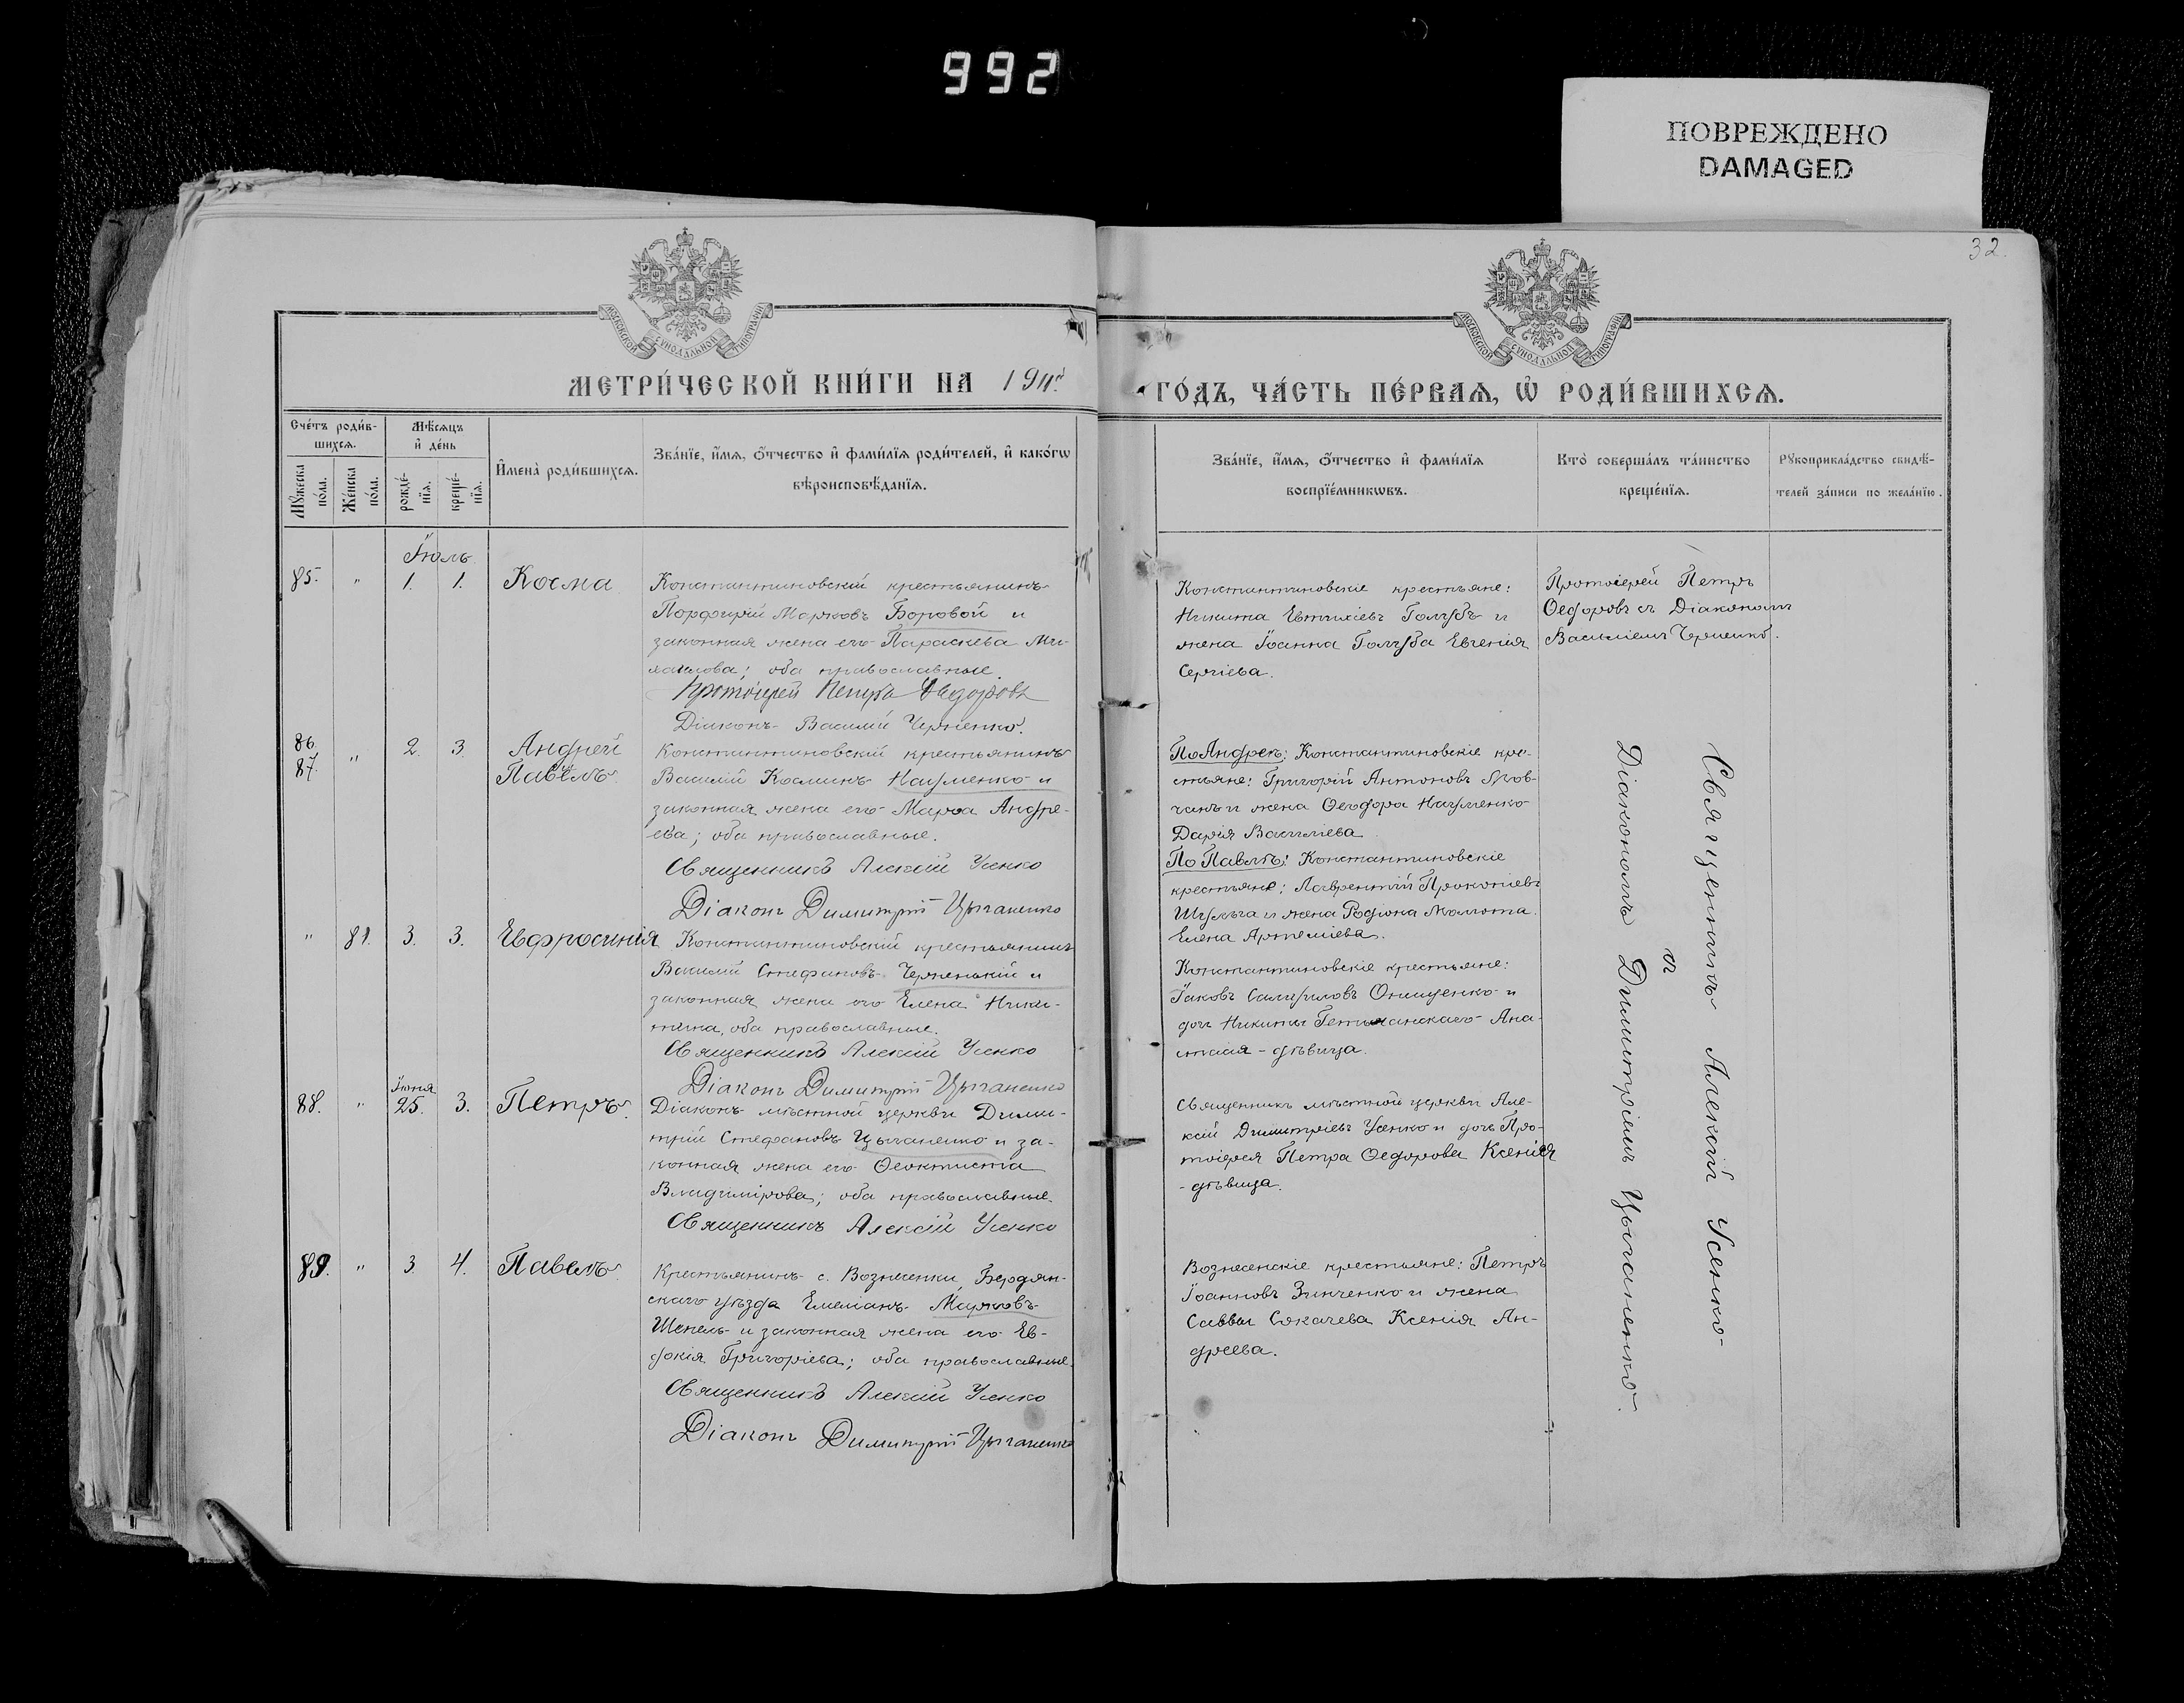 992
ПОВРЕЖДЕНО
DAMAGED
32.
МОСКОВСКОЙ СѴНОДАЛЬНОЙ ТИПОГРАФІИ
МОСКОВСКОЙ СѴНОДАЛЬНОЙ ТИПОГРАФІИ
МЕТРИ́ЧЕСКОЙ КНИ́ГИ НА 1911й
ГО́ДЪ, ЧА́СТЬ ПЕ́РВАѦ, Ѡ҆ РОДИ́ВШИХСѦ.
Сче́тъ роди́в-
шихсѧ.
Мꙋ́жеска
по́ла.
Же́нска
по́ла.
Мѣ́сѧцъ
и҆ де́нь
рожде́-
нїѧ.
креще́-
нїѧ.
И҆мена̀ роди́вшихсѧ.
Зва́нїе, и҆́мѧ, ѻ҆́тчество и҆ фами́лїѧ роди́телей, и҆ како́гѡ
вѣроисповѣ́данїѧ.
Зва́нїе, и҆́мѧ, ѻ҆́тчество и҆ фами́лїѧ
воспрїе́мникѡвъ.
Кто̀ соверша́лъ та́инство
креще́нїѧ.
Рꙋкоприкла́дство свидѣ́-
телей за́писи по жела́нїю.
Іюль
85. " 1. 1. Косма
Константиновскій крестьянинъ
Порфирій Марковъ Боровой и
законная жена его Параскева Ми-
хаилова; оба православные.
Протоіерей Петръ Ѳедоровъ
Діаконъ Василій Черненко.
Константиновскіе крестьяне:
Никита Евтихіевъ Голубъ и
жена Іоанна Голуба Евгенія
Сергіева.
Протоіерей Петръ
Ѳедоровъ съ Діакономъ
Василіемъ Черненко.
86. 87. " 2. 3. Андрей
Павелъ
Константиновскій крестьянинъ
Василій Косминъ Науменко и
законная жена его Марѳа Андре-
ева; оба православные.
Священникъ Алексій Усенко
Діаконъ Димитрій Цыганенко
По Андреѣ: Константиновскіе кре-
стьяне: Григорій Антоновъ Мов-
чанъ и жена Ѳеодора Науменко
Дарія Василіева
По Павлѣ: Константиновскіе
крестьяне: Лаврентій Прокопіевъ
Шульга и жена Родіона Молота
Елена Артеміева.
" 81. 3. 3. Евфросинія
Константиновскій крестьянинъ
Василій Стефановъ Черненькій и
законная жена его Елена Ники-
тина, оба православные.
Священникъ Алексій Усенко
Діаконъ Димитрій Цыганенко
Константиновскіе крестьяне:
Іаковъ Самуиловъ Онищенко и
дочь Никиты Гетманскаго Ана-
стасія - дѣвица.
88. " Іюня 25. 3. Петръ.
Діаконъ мѣстной церкви Дими-
трій Стефановъ Цыганенко и за-
конная жена его Ѳеоктиста
Владимірова; оба православные.
Священникъ Алексій Усенко
Священникъ мѣстной церкви Але-
ксій Димитріевъ Усенко и дочь Про-
тоіерея Петра Ѳедорова Ксенія
- дѣвица.
89. " 3. 4. Павелъ
Крестьянинъ с. Вознесенки, Бердян-
скаго уѣзда Емеліанъ Марковъ
Шепель и законная жена его Ев-
докія Григоріева; оба православные.
Священникъ Алексій Усенко
Діаконъ Димитрій Цыганенко
Вознесенскіе крестьяне: Петръ
Іоанновъ Зинченко и жена
Саввы Сокачева Ксенія Ан-
дреева.
Священникъ Алексій Усенко
съ
Діакономъ Димитріемъ Цыганенко.